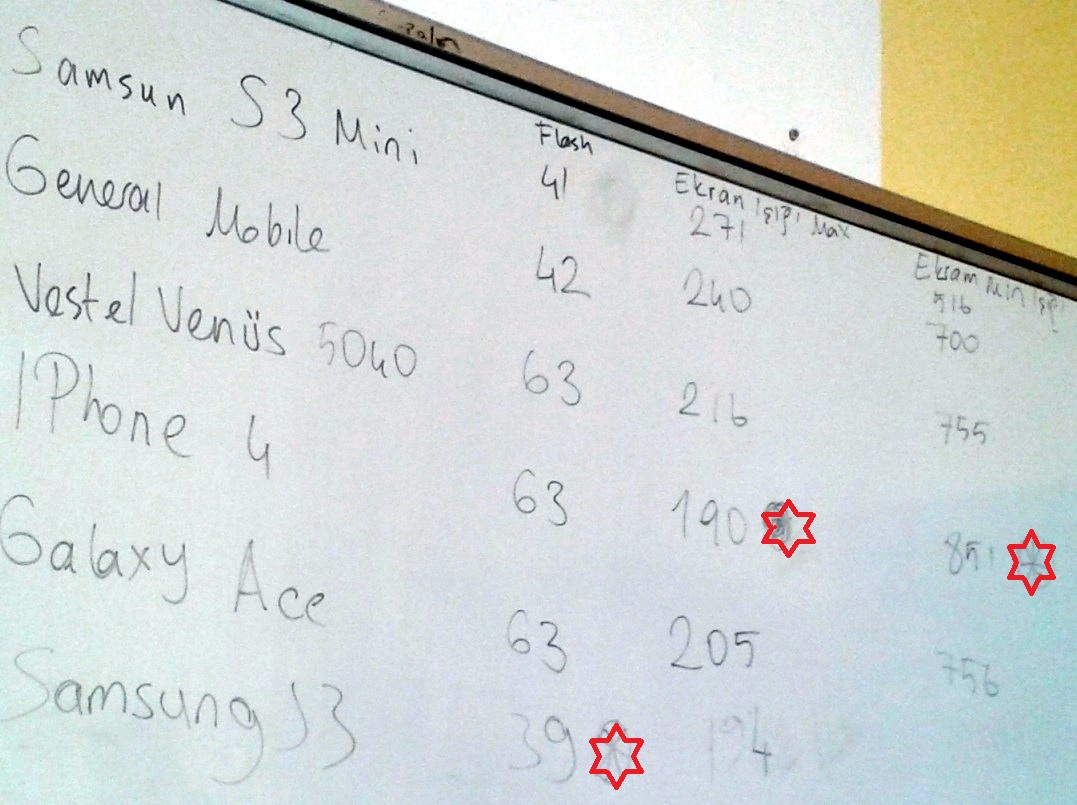 Samsun S3 Mini
Flash
41
Ekran Işığı Max
271
Ekram Min Işığı
516
General Mobile
42
240
700
Vestel Venüs 5040
63
216
755
IPhone 4
63
190
851
Galaxy Ace
63
205
756
Samsung S3
39
194